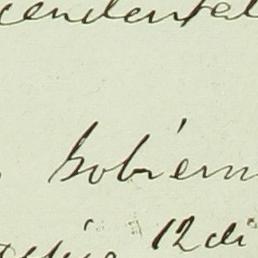 cendental
Gobiern
12 di